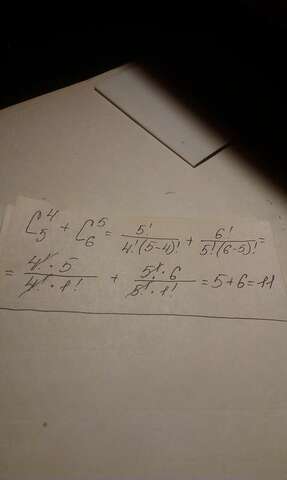 C₅⁴ + C₆⁵ = 5!/4!(5-4)! + 6!/5!(6-5)! =
= 4!·5/4!·1! + 5!·6/5!·1! = 5+6=11